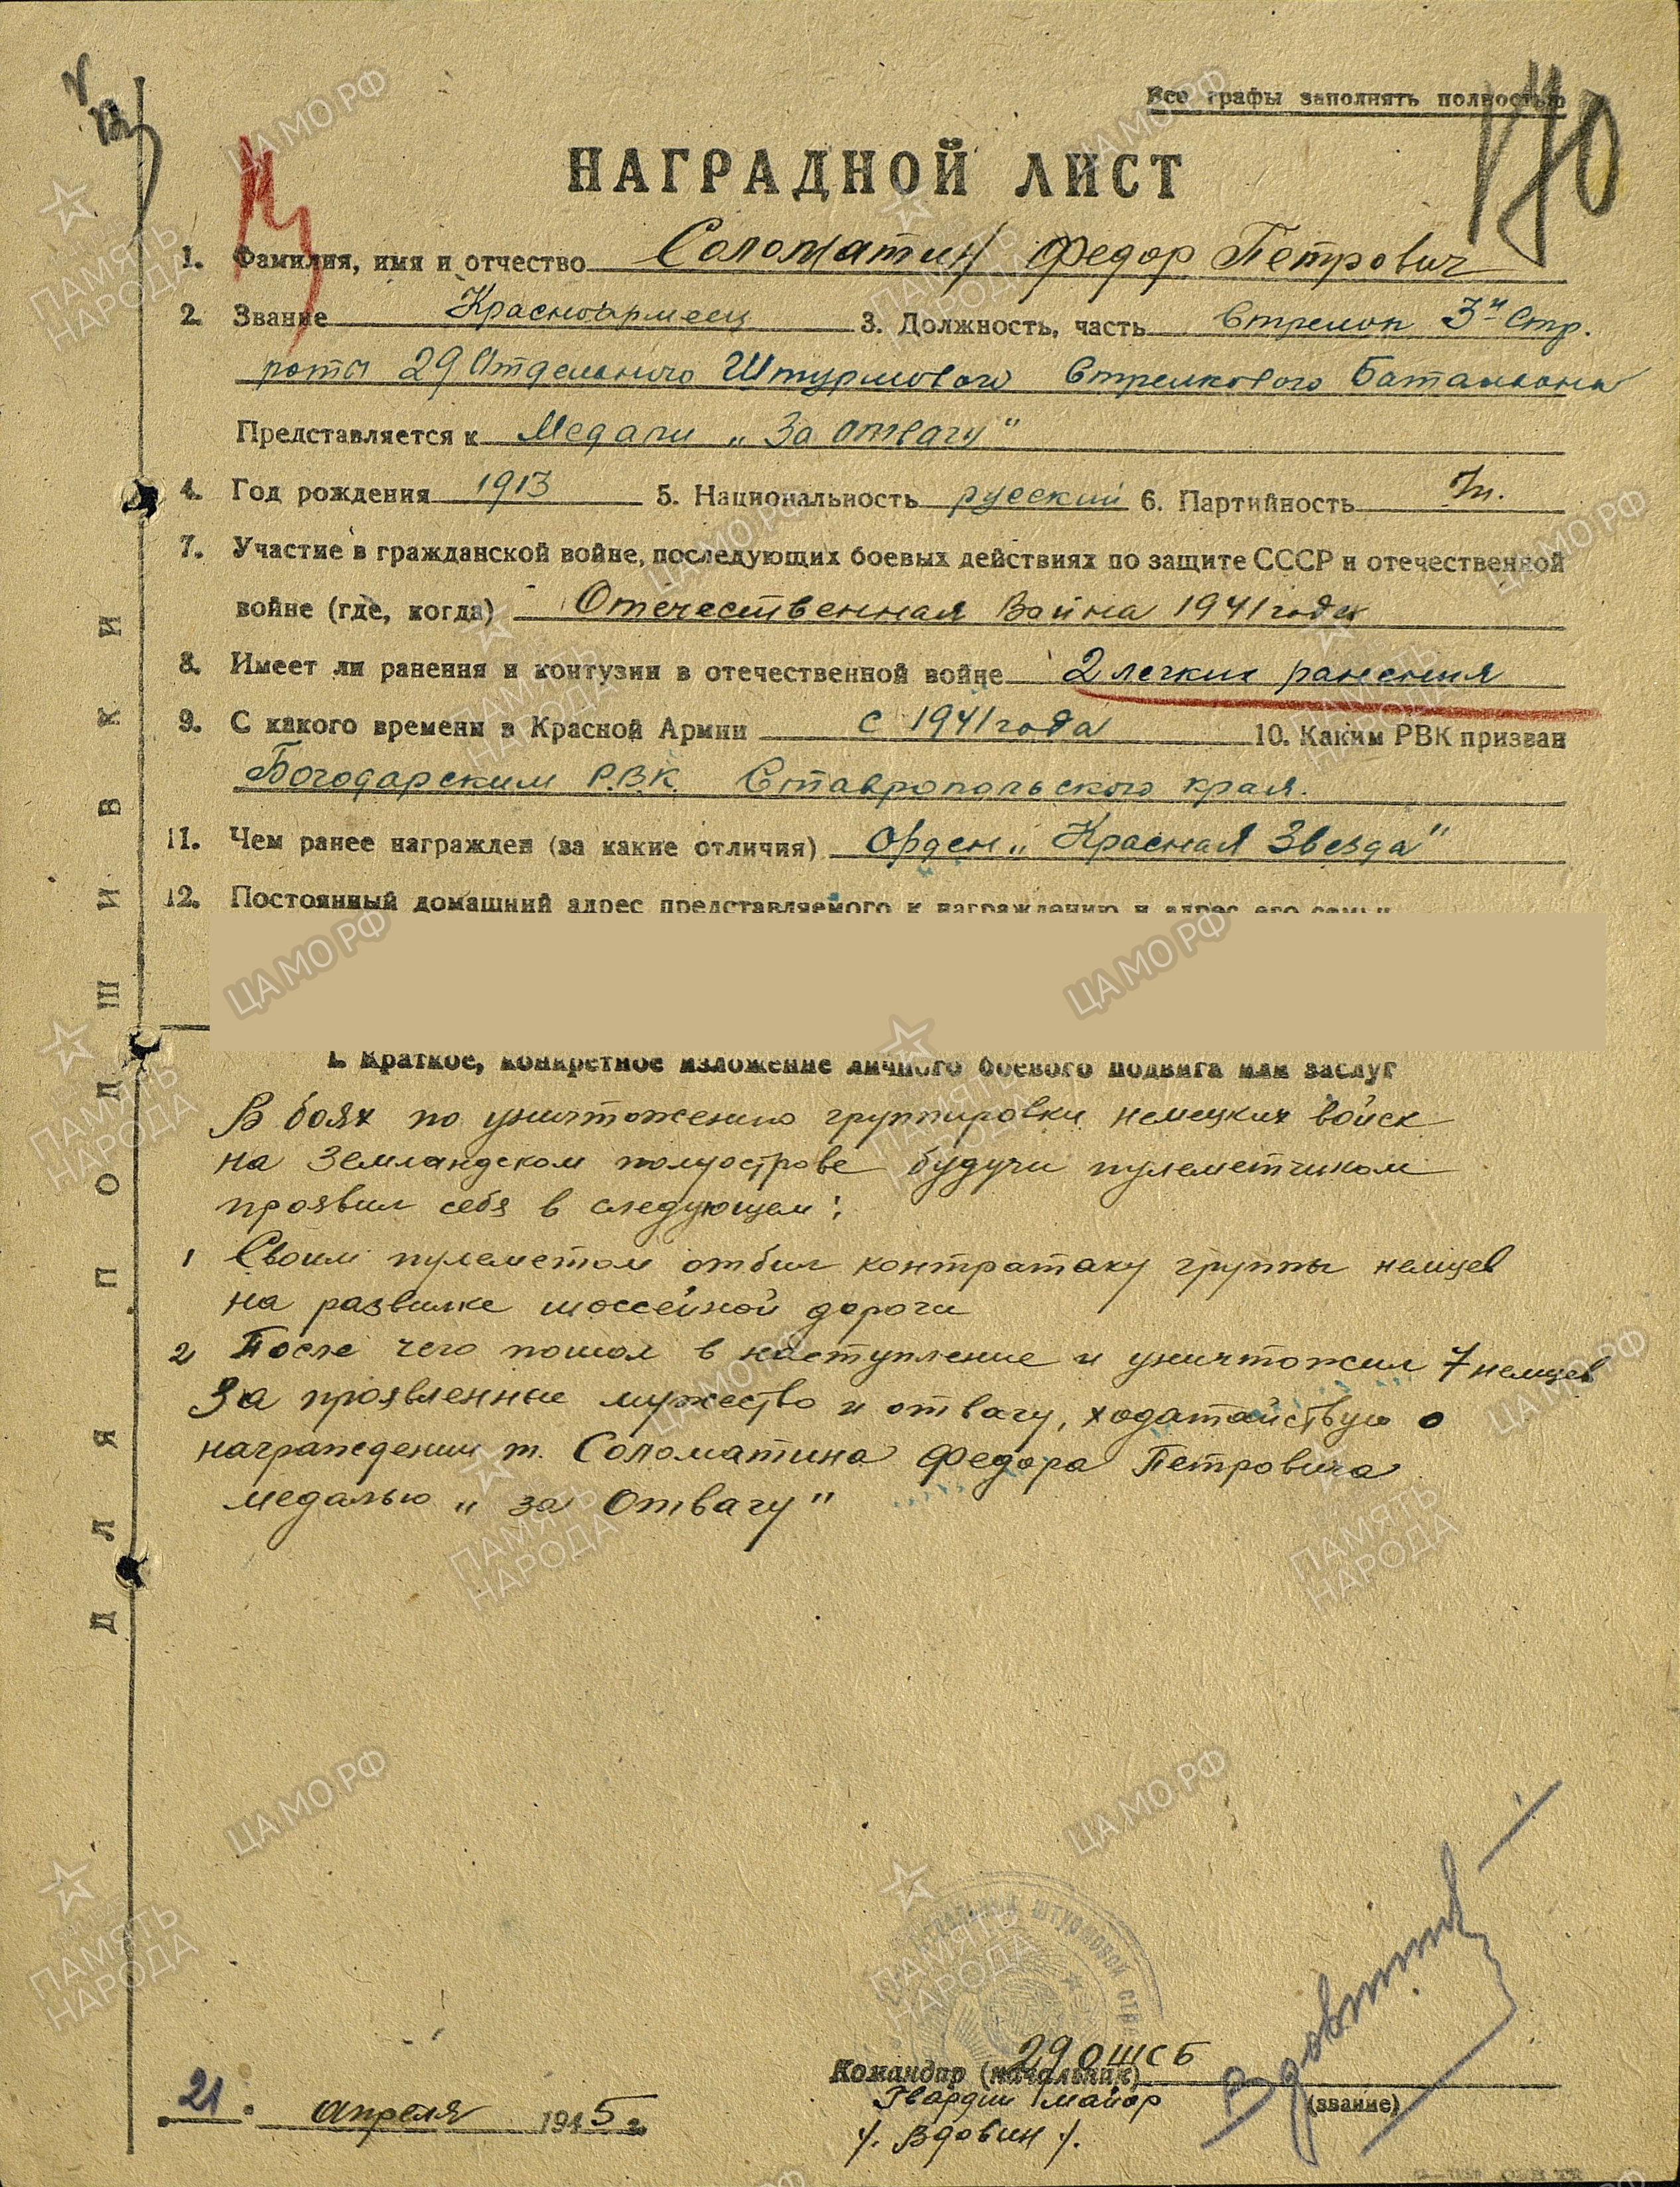 Все графы заполнять полностью
170
НАГРАДНОЙ ЛИСТ
1. Фамилия, имя и отчество Соломатин Федор Петрович
2. Звание Красноармеец 3. Должность, часть Стрелок 3й Стр.
роты 29 Отдельного Штурмового Стрелкового Баталиона
Представляется к Медали „За отвагу"
4. Год рождения 1913 5. Национальность русский 6. Партийность
7. Участие в гражданской войне, последующих боевых действиях по защите СССР и отечественной
войне (где, когда) Отечественная Война 1941 года
8. Имеет ли ранения и контузии в отечественной войне 2 легких ранения
9. С какого времени в Красной Армии с 1941 года 10. Каким РВК призван
Богодарским Р.В.К. Ставропольского края.
11. Чем ранее награжден (за какие отличия) Орден „Красная Звезда"
12. Постоянный домашний адрес представляемого к награждению и адрес его семьи
I. Краткое, конкретное изложение личного боевого подвига или заслуг
В боях по уничтожению группировки немецких войск
на Земландском полуострове будучи пулеметчиком
проявил себя в следующем:
1 Своим пулеметом отбил контратаку группы немцев
на развилке шоссейной дороги
2 После чего пошол в наступление и уничтожил 7 немцев
За проявленные мужество и отвагу, ходатайствую о
награждении т. Соломатина Федора Петровича
медалью „за Отвагу"
29 ОШСБ
Командир (начальник)
Гвардии майор (звание)
/. Вдовин /.
21 апреля 1945 г.
ДЛЯ ПОДШИВКИ
ЦАМО.РФ
ПАМЯТЬ НАРОДА